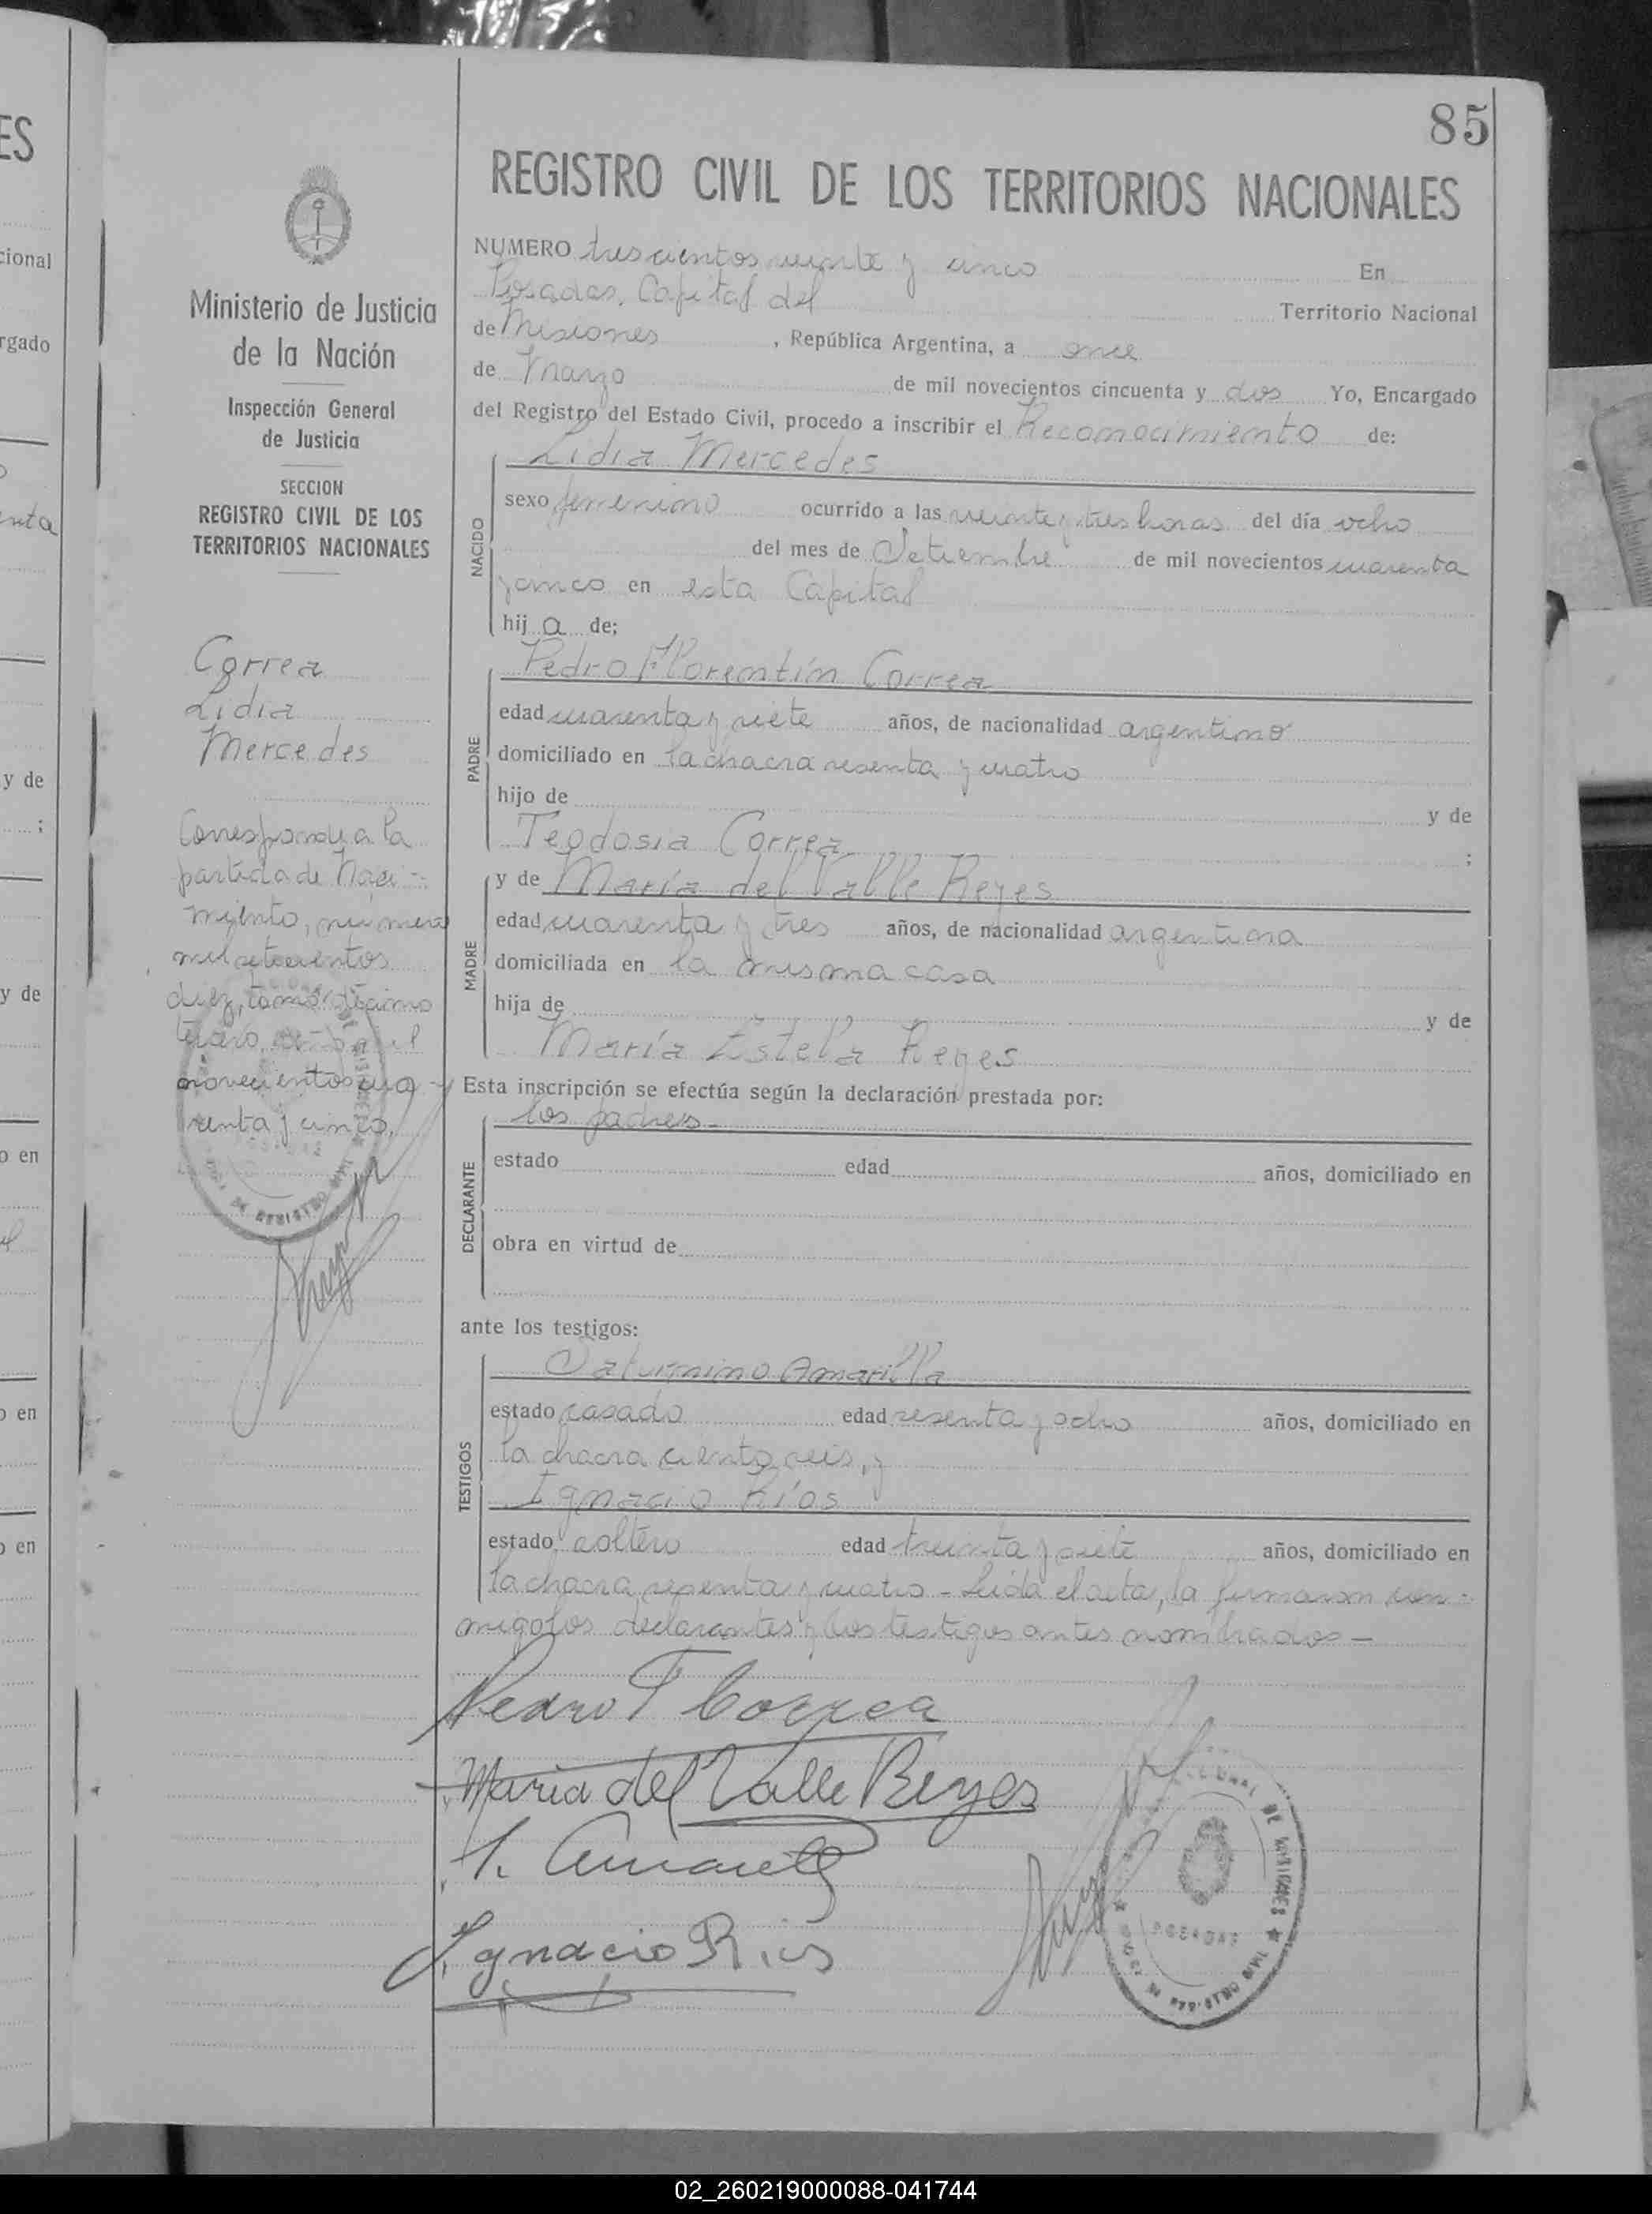 85
REGISTRO CIVIL DE LOS TERRITORIOS NACIONALES
Ministerio de Justicia
de la Nación
Inspección General
de Justicia
SECCION
REGISTRO CIVIL DE LOS
TERRITORIOS NACIONALES
Correa
Lidia
Mercedes
Corresponde a la
partida de Naci-
miento, número
mil setecientos
diez, tomo décimo
tercero, año mil
novecientos cua-
renta y cinco.
NUMERO trescientos veinte y cinco En
Posadas, Capital del Territorio Nacional
de Misiones, República Argentina, a once
de Marzo de mil novecientos cincuenta y dos Yo, Encargado
del Registro del Estado Civil, procedo a inscribir el Reconocimiento de:
Lidia Mercedes
NACIDO
sexo femenino ocurrido a las veinte y tres horas del día ocho
del mes de Setiembre de mil novecientos cuarenta
y cinco en esta Capital
hij a de;
Pedro Florentín Correa
PADRE
edad cuarenta y siete años, de nacionalidad argentino
domiciliado en la chacra sesenta y cuatro
hijo de y de
Teodosia Correa ;
y de María del Valle Reyes
MADRE
edad cuarenta y tres años, de nacionalidad argentina
domiciliada en la misma casa
hija de y de
María Estela Reyes
Esta inscripción se efectúa según la declaración prestada por:
los padres-
DECLARANTE
estado edad años, domiciliado en
obra en virtud de
ante los testigos:
Saturnino Amarilla
TESTIGOS
estado casado edad sesenta y ocho años, domiciliado en
la chacra ciento seis, y
Ignacio Ríos
estado soltero edad treinta y siete años, domiciliado en
la chacra sesenta y cuatro - Leída el acta, la firmaron con-
migo los declarantes y los testigos antes nombrados -
Pedro F Correa
María del Valle Reyes
S. Amarilla
Ignacio Rios
POSADAS
02_260219000088-041744